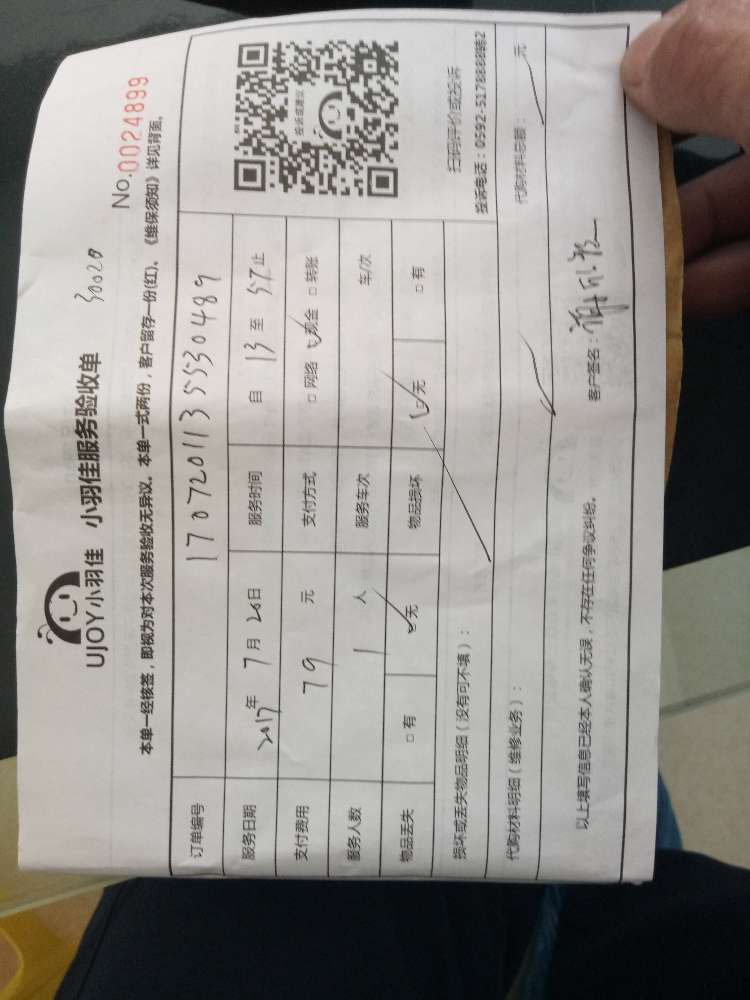 UJOY小羽佳 小羽佳服务验收单 30020
No.0024899
本单一经核签，即视为对本次服务验收无异议。本单一式两份，客户留存一份(红)。《维保须知》详见背面。
订单编号 17072011355530489
服务日期 2017年 7月 20日 服务时间 自 13 至 57 止
支付费用 79 元 支付方式 □ 网络 ☑ 现金 □ 转账
服务人数 1 人 服务车次 车/次
物品丢失 □ 有 ☑ 无 物品损坏 ☑ 无 □ 有
投诉或建议
扫码评价或投诉
投诉电话：0592-5178888转2
损坏或丢失物品明细（没有可不填）：
代购材料明细（维修业务）： 代购材料总额： 元
以上填写信息已经本人确认无误，不存在任何争议纠纷。 客户签名：